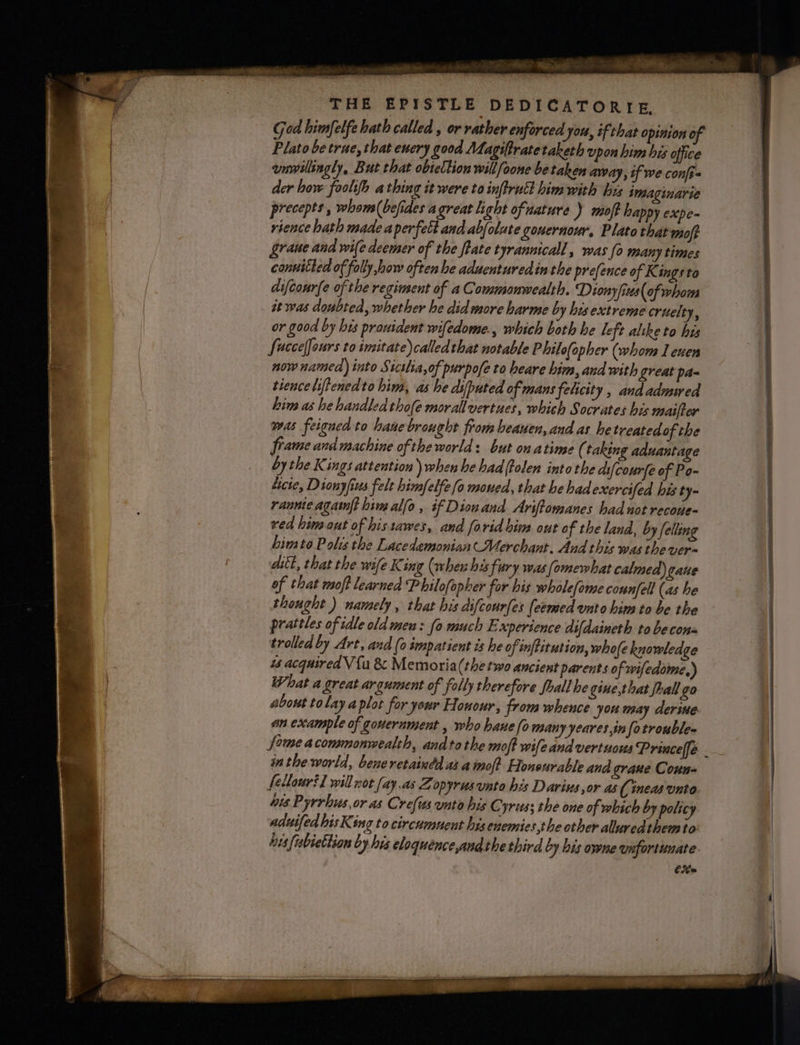 THE EPISTLE DEDICATORIE.
God himſelfe hath called, or rather enforced you, if that opinion of
Plato be true, that euery good Magiſtrate taketh vpon him his office
vnwillingly. But that obiection will ſoone be taken away, if we conſi-
der how fooliſh a thing it were to inſtruct him with his imaginarie
precepts, whom (beſides a great light of nature ) moſt happy expe-
rience hath made a perfect and abſolute gouernour. Plato that moſt
graue and wiſe deemer of the ſtate tyrannicall, was ſo many times
conuicted of folly, how often he aduentured in the preſence of Kings to
diſcourſe of the regiment of a Commonwealth. Dionyſius (of whom
it was doubted, whether he did more harme by his extreme cruelty,
or good by his prouident wiſedome., which both he left alike to his
ſucceſſours to imitate) called that notable Philoſopher (whom I euen
now named) into Sicilia, of purpoſe to heare him, and with great pa-
tience liſtened to him, as he diſputed of mans felicity, and admired
him as he handled thoſe morall vertues, which Socrates his maiſter
was feigned to haue brought from heauen, and as he treated of the
frame and machine of the world: but on a time (taking aduantage
by the Kings attention) when he had ſtolen into the diſcourſe of Po-
licie, Dionyſius felt himſelfe ſo moued, that he had exerciſed his ty-
rannie againſt him alſo, if Dion and Ariſtomanes had not recoue-
red him out of his iawes, and ſo rid him out of the land, by ſelling
him to Polis the Lacedemonian Merchant. And this was the ver-
dict, that the wiſe King (when his fury was ſomewhat calmed) gaue
of that moſt learned Philoſopher for his wholeſome counſell (as he
thought ) namely, that his diſcourſes ſeemed vnto him to be the
prattles of idle old men: ſo much Experience diſdaineth to be con-
trolled by Art, and ſo impatient is he of inſtitution, whoſe knowledge
is acquired Vſu & Memoria (the two ancient parents of wiſedome.)
What a great argument of folly therefore ſhall he giue, that ſhall go
about to lay a plot for your Honour, from whence you may deriue
an example of gouernment, who haue ſo many yeares, in ſo trouble-
ſome a commonwealth, and to the moſt wiſe and vertuous Princeſſe
in the world, bene retained as a moſt Honourable and graue Coun-
ſellour? I will not ſay as Zopyrus vnto his Darius, or as Cineas vnto
his Pyrrhus, or as Creſus vnto his Cyrus; the one of which by policy
aduiſed his King to circumuent his enemies, the other allured them to
his ſubiection by his eloquence, and the third by his owne vnfortunate
exa